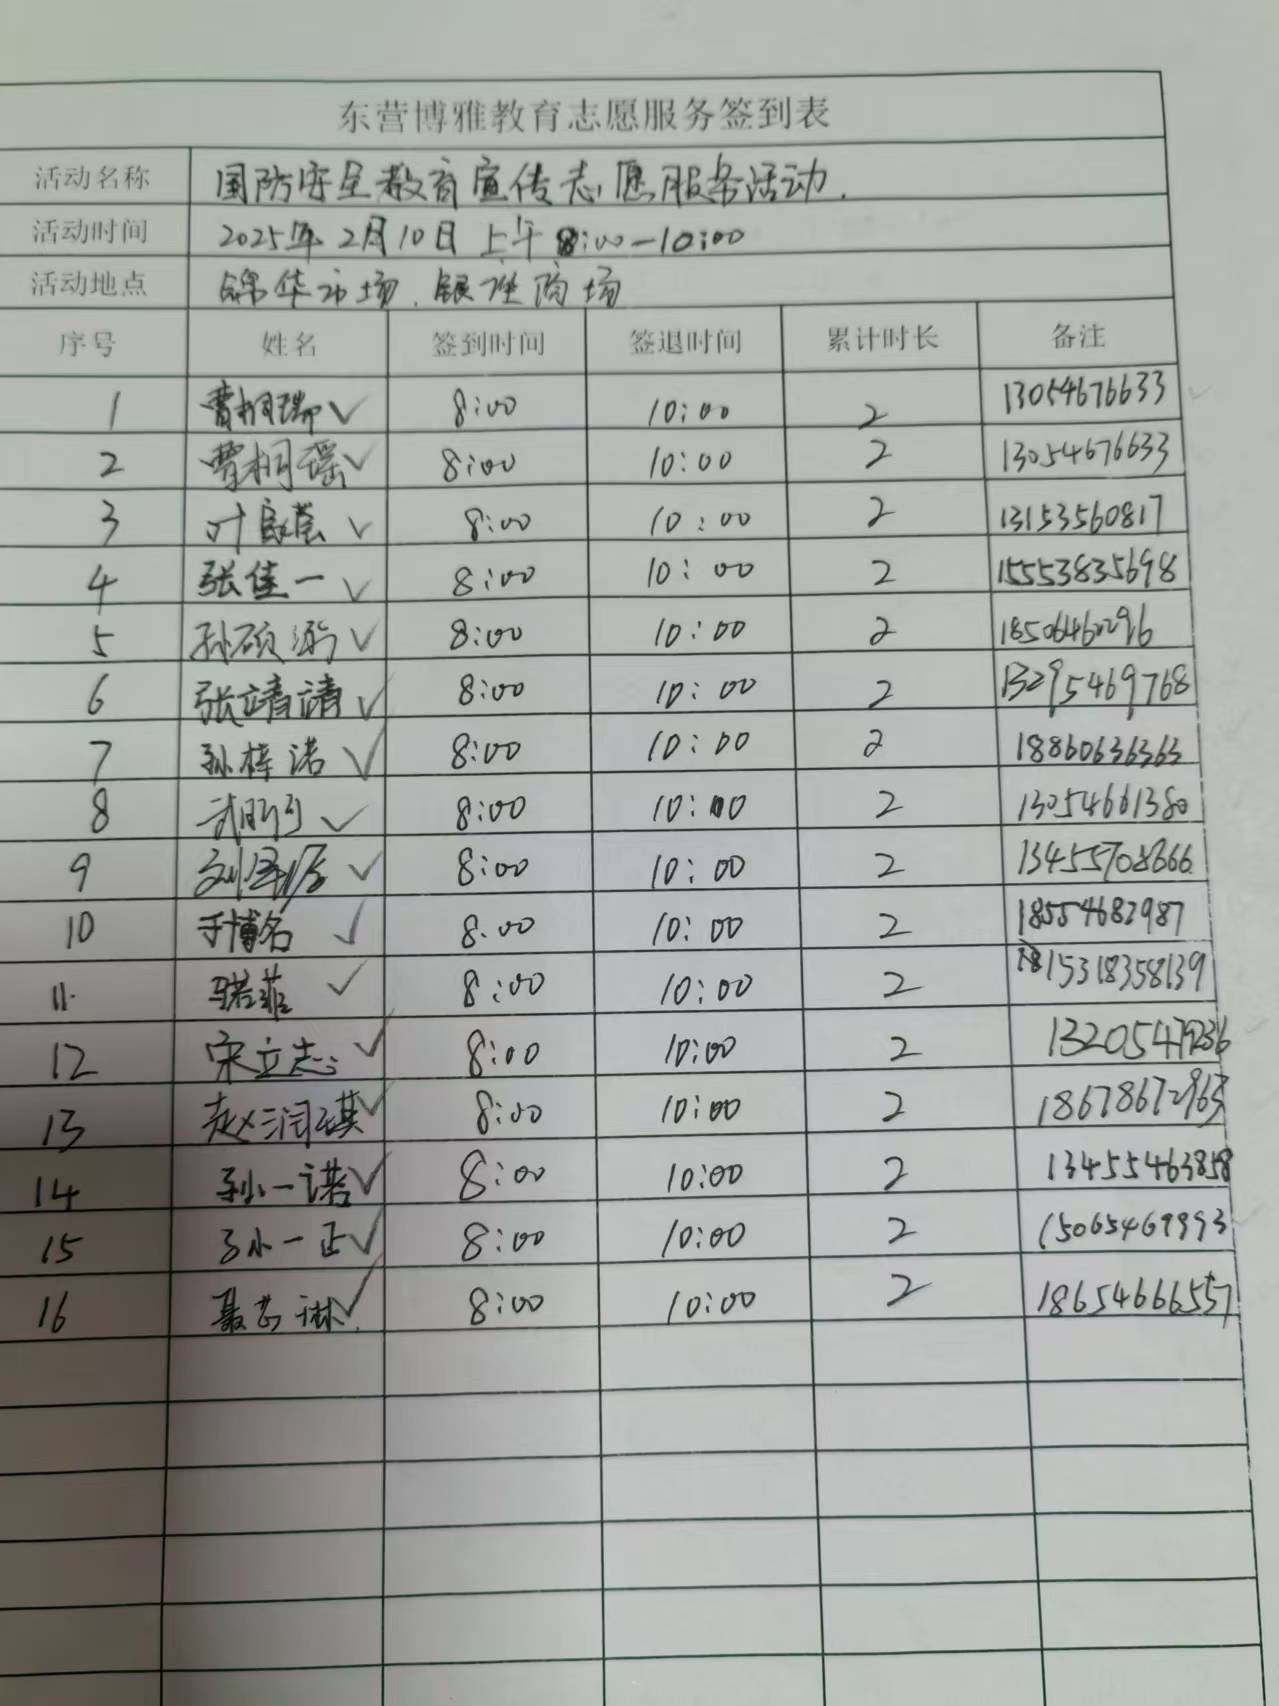 东营博雅教育志愿服务签到表
活动名称 国防安全教育宣传志愿服务活动.
活动时间 2025年2月10日上午8:00-10:00
活动地点 锦华市场.银座商场
序号 姓名 签到时间 签退时间 累计时长 备注
1 曹桐瑞✓ 8:00 10:00 2 13054676633
2 曹桐瑶✓ 8:00 10:00 2 13054676633
3 叶 ✓ 8:00 10:00 2 13153560817
4 张佳一✓ 8:00 10:00 2 15553835698
5 孙硕 ✓ 8:00 10:00 2 18506460296
6 张靖靖✓ 8:00 10:00 2 13295469768
7 孙梓诺✓ 8:00 10:00 2 18860636363
8 武 ✓ 8:00 10:00 2 13054661380
9 刘 ✓ 8:00 10:00 2 13455708666
10 于博名✓ 8:00 10:00 2 18554682987
11 ✓ 8:00 10:00 2 15318358139
12 宋立志✓ 8:00 10:00 2 13205479236
13 赵润琪✓ 8:00 10:00 2 18678672963
14 孙一诺✓ 8:00 10:00 2 13455463858
15 孙一正✓ 8:00 10:00 2 15065469993
16 聂艺琳✓ 8:00 10:00 2 18654666557